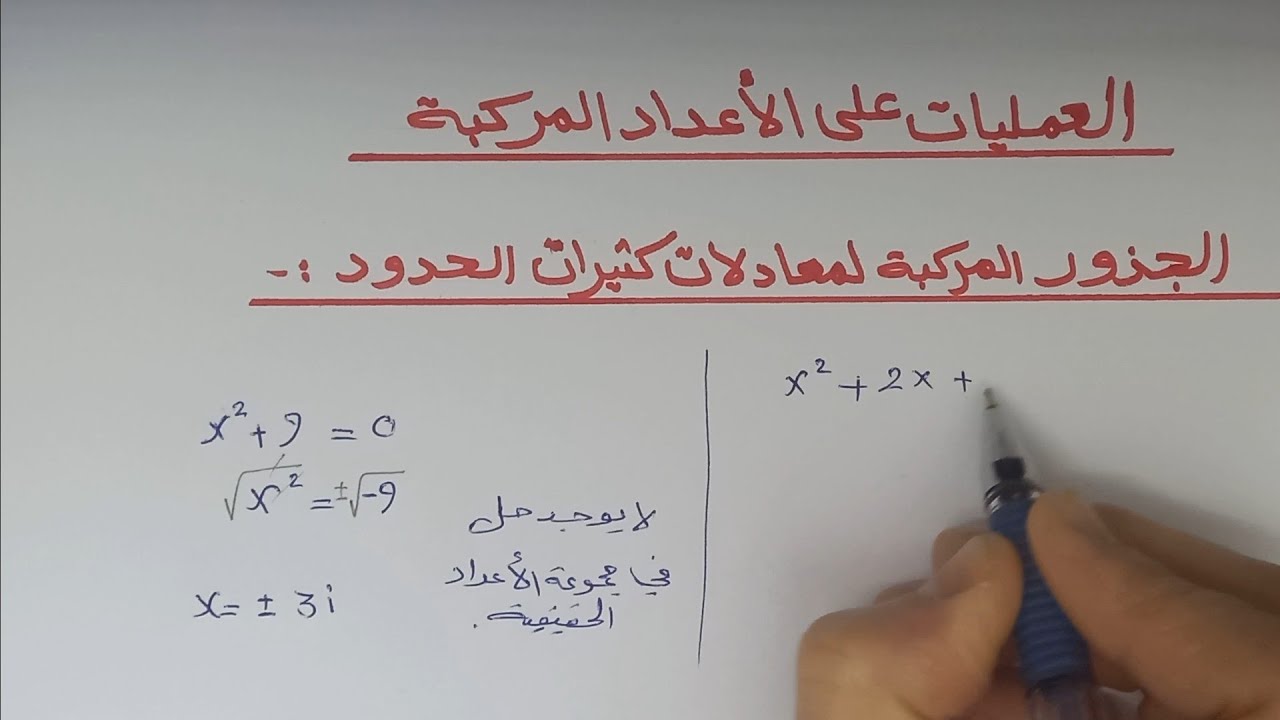 العمليات على الأعداد المركبة
الجذور المركبة لمعادلات كثيرات الحدود :-
x² + 2x +
x² + 9 = 0
√x² = ±√-9
x = ± 3i
لا يوجد حل
في مجموعة الأعداد
الحقيقية .